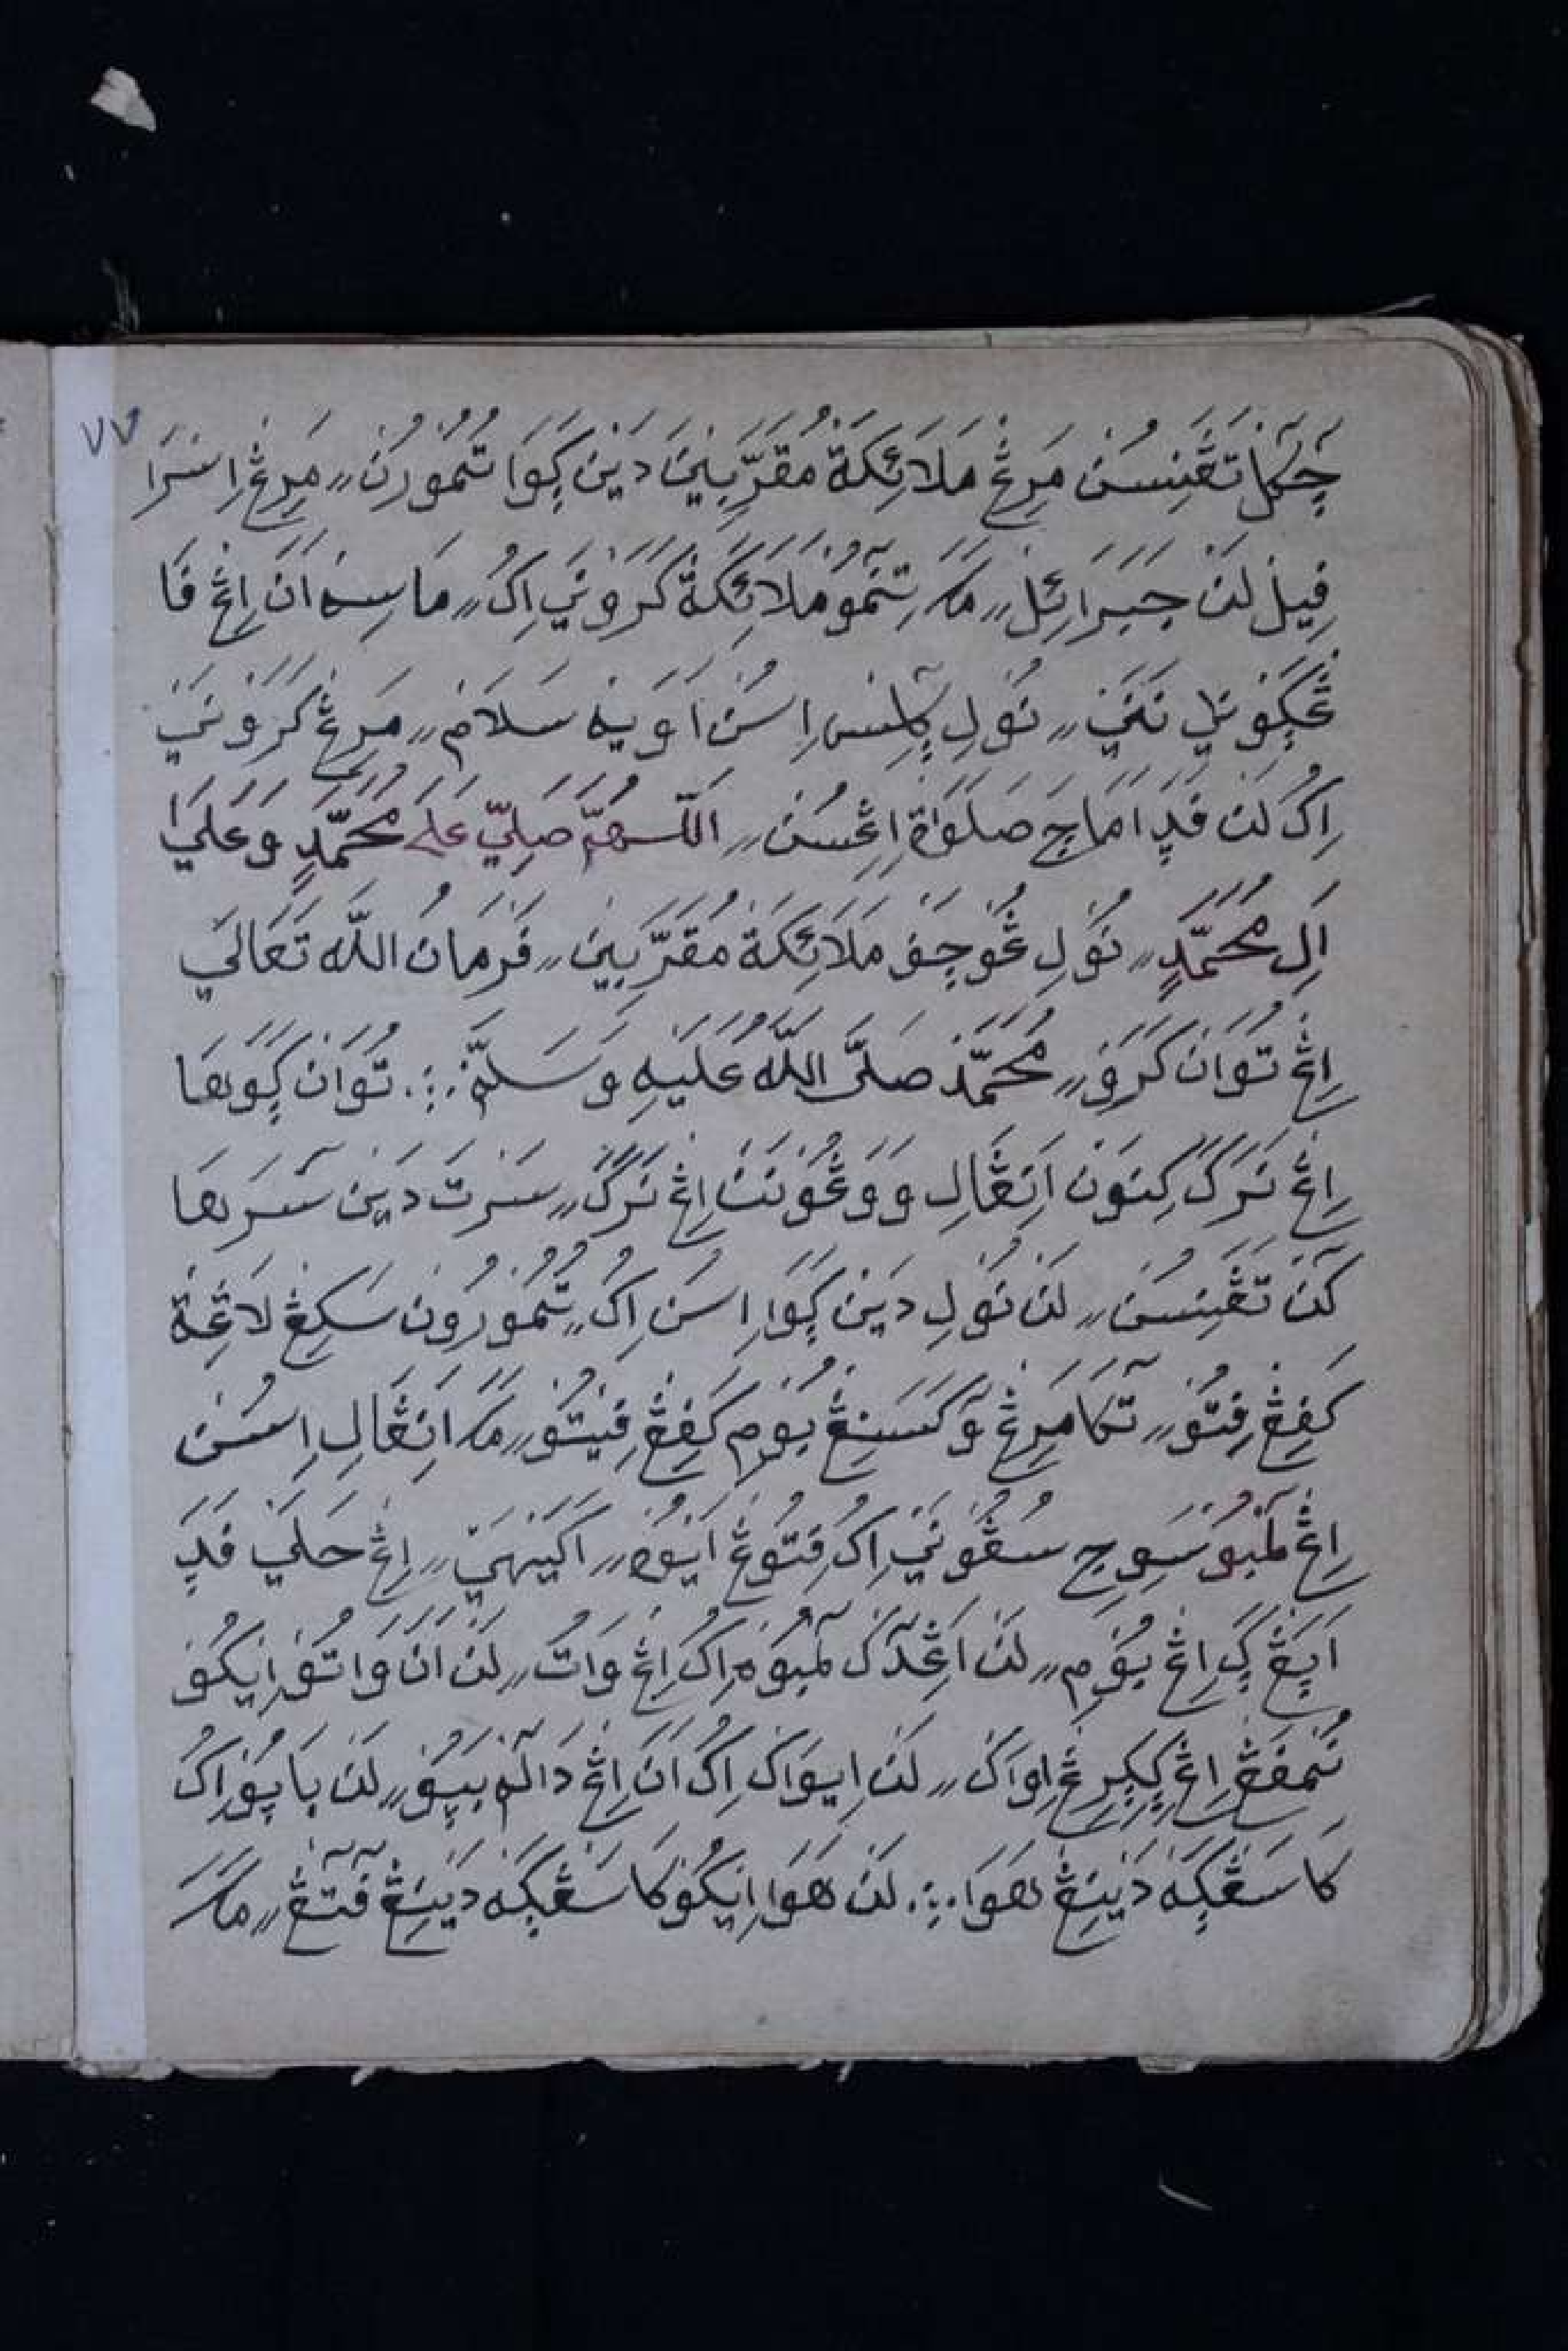 ٧٧
مَرِڠْ مَلَائِكَةْ مُقَرَّبِيْنَ دَيْنَ ڮَوَا تُمُوْرُنْ ,, مَرِڠْ اِسْرَا
فِيلْ لَنْ جِبَرَائِلْ ,, مَكَ مَلَائِكَةْ كَرَوْنَيْ اِكُ ,, مَاسِهْ اَنَ اِڠْ فَا
نُوْلِ اِسُنْ اَوَيْهْ سَلَامْ ,, مَرِڠْ كَرَوْنَيْ
اِكُ لَنْ فَدَ اَمَاجَ صَلَوَاةْ اِڠْسُنْ ,, اَللّٰهُمَّ صَلِّيْ عَلَى مُحَمَّدٍ وَعَلَيَ
اَلِ مُحَمَّدٍ ,, نُوْلِ ڠُوْجَفْ مَلَائِكَةْ مُقَرَّبِيْنَ ,, فَرْمَانُ اللّٰهْ تَعَالَي
اِڠْ تُوَانْ كَرَوْ ,, مُحَمَّدْ صَلَّى اللّٰهُ عَلَيْهِ وَسَلَّمْ ؞ تُوَانْ ڮَوَهَا
اِڠْ نَرَكَ كِنَوْنْ اَنِڠَالِ وَوَڠُوْنَنْ اِڠْ نَرَكَ ,, سَرْتَ دَيْنَ سَمَرَهَا
كَنْ تَڠَنِسُنْ ,, لَنْ نُوْلِ دَيْنْ ڮَوَا اِسُنْ اِكُ ,, تُمُوْرُوْنْ سَكِڠْ لَاڠِةْ
كَفِڠْ فِتُوْ ,, تَكَا مَرِڠْ وَكَسَنِڠْ بُوْمِ كَفِڠْ فِيْتُوْ ,, مَكَ اَنِڠَالِ اِسُنْ
اِڠْ لَمْبُوْ سَوِجِ سُڠُوْنَيْ اِكُ فِتُوْڠْ اَيْوُ ,, اَكَيْهَيْ ,, اِڠْ حَلَيْ فَدَ
اَبَڠْ ڮَ اِڠْ بُوْمِ ,, لَنْ اَڠَدَكْ لَمْبُوْ اِكُ اِڠْ وَاتُ ,, لَنْ اَنَ وَاتُوْ اِيْكُوْ
نُمْفَڠْ اِڠْ ڮِڮِرِڠْ اِوَاكْ ,, لَنْ اِيْوَاكْ اِكُ اَنَ اِڠْ دَالَمْ بَپُوْ ,, لَنْ بَاپُوْ اِكُ
كَاسَڠْڮَهْ دَيْنِڠْ هَوَا ؞ لَنْ هَوَا اِيْكُوْ كَاسَڠْڮَهْ دَيْنِڠْ فَتَڠْ ,, مَكَ